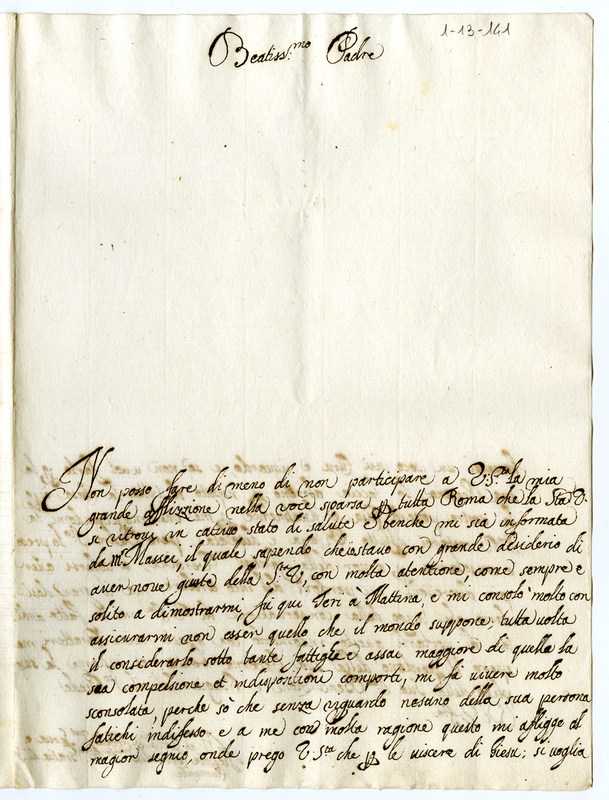 1-13-141
Beatiss.mo Padre
Non posso fare di meno di non participare a V: S.ta la mia
grande afflizzione nella voce sparsa p tutta Roma che la Sta V:
si ritrovi in cativo stato di salute e benche mi sia informata
da Mr Massei, il quale sapendo che stavo con grande desiderio di
aver nove giuste della S.ta V, con molta atentione, come sempre e
solito a dimostrarmi, fù qui Ieri à Mattina, e mi consolò molto con
assicurarmi non esser quello che il mondo suppone, tutta volta
il considerarlo sotto tante fattighe e assai maggiore di quella la
sua complesione et indispotitione comporti, mi fà vivere molto
sconsolata, perche sò che senza riguardo nesuno della sua persona
fatichi indifesso e a me con molta ragione questo mi afligge al
magior segnio, onde prego V: Sta che p le viscere di Giesù; si voglia